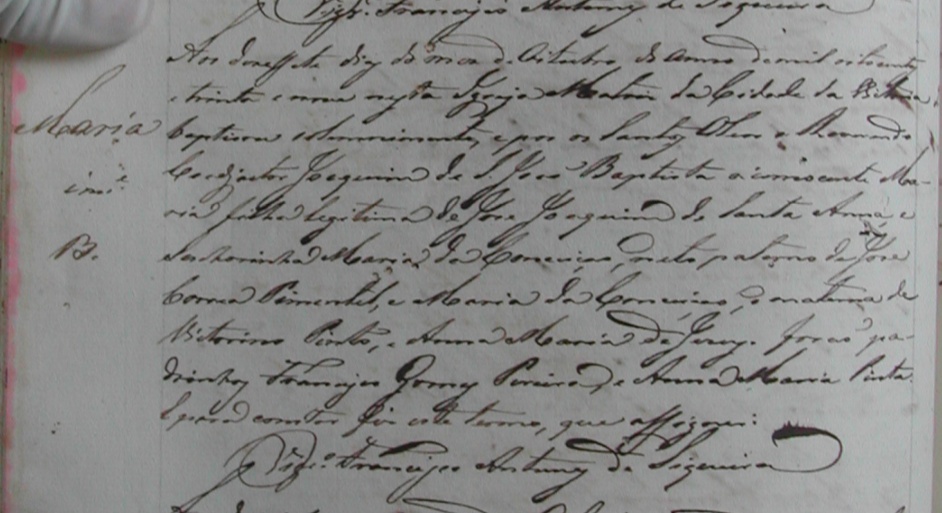 Vigr.º Francisco Antunes de Siqueira
Aos desassete dias do mez de Oitubro do anno de mil oitocentos
e trinta e nove nesta Igreja Matriz da Cidade da Victoria
Maria
baptizou solemnemente, e pos os Santos Oleos o Reverendo
Coadjuctor Joaquim de S. José Baptista a innocente Ma-
inn.e
ria filha legitima de Jose Joaquim de Santa Anna, e
B.
Senhorinha Maria da Conceiçao, neta paterna de Jose
Correa Pimentel, e Maria da Conceiçao, e materna de
Vitorino Pinto, e Anna Maria de Jesus. forao pa-
drinhos Francisco Gomes Pereira, e Anna Maria Pinta.
E para constar fiz este termo, que assignei:
Vigr.º Francisco Antunes de Siqueira